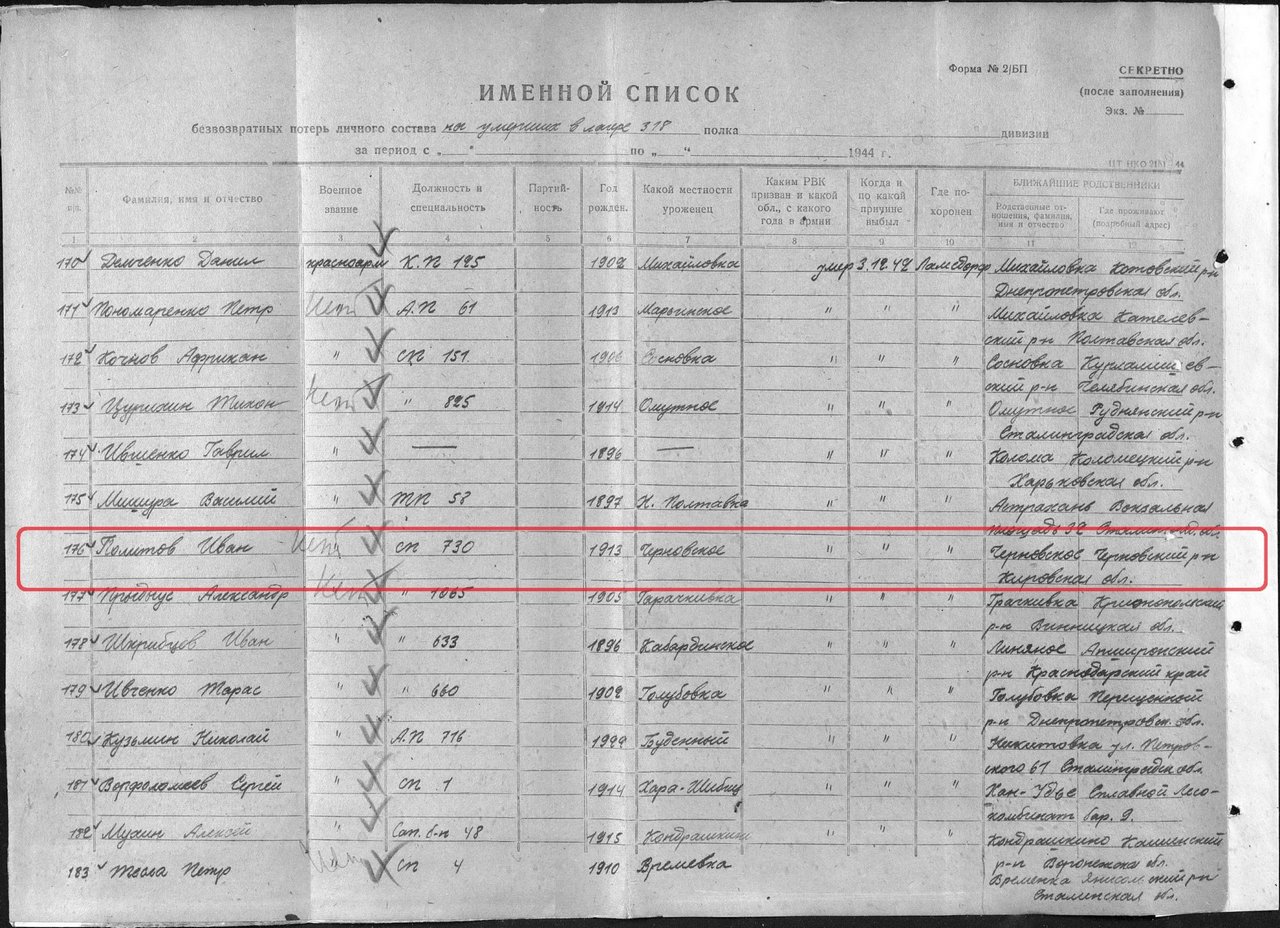 Форма № 2/БП
СЕКРЕТНО
(после заполнения)
Экз. №
ИМЕННОЙ СПИСОК
безвозвратных потерь личного состава на умерших в лагере 318 полка дивизии
за период с „ “ по „ “ 1944 г.
№№ Фамилия, имя и отчество Военное звание Должность и специальность Партийность Год рожден. Какой местности уроженец Каким РВК призван и какой обл., с какого года в армии Когда и по какой причине выбыл Где похоронен БЛИЖАЙШИЕ РОДСТВЕННИКИ
Родственные отношения, фамилия, имя и отчество Где проживают (подробный адрес)
1 2 3 4 5 6 7 8 9 10 11 12
170 Демченко Данил красноарм К.П 125 1902 Михайловка умер 3.12.42 Ламсдорф Михайловка Котовский р-н
Днепропетровская обл.
171 Пономаренко Петр Нет А.П 61 1913 Марьинское " " " Михайловка Кателев-
ский р-н Полтавская обл.
172 Кочнов Африкан " СП 151 1906 Сосновка " " " Сосновка
ский р-н Челябинская обл.
173 Цурихин Тихон Нет " 825 1914 Омутное " " " Омутное Руднянский р-н
Сталинградская обл.
174 Ившенко Гаврил " — 1896 — " " " Колома Коломецкий р-н
Харьковская обл.
175 Мишура Василий " ТП 53 1897 Н. Полтавка " " " Астрахань Вокзальная
площадь 32
176 Политов Иван Нет СП 730 1913 Черновское " " " Черновское Черновский р-н
Кировская обл.
177 Александр Нет " 1065 1905 Гарачкивка " " " Грачкивка
р-н Винницкая обл.
178 Шкрибцев Иван " " 633 1896 Кабардинское " " " Линяное Апширонский
р-н Краснодарский край
179 Ивченко Тарас " " 660 1902 Голубовка " " " Голубовка
р-н Днепропетровск. обл.
180 Кузьмин Николай " А.П 716 Буденный " " " Никитовка ул. Петров-
ского 61 Сталинградск обл.
181 Варфоломеев Сергей " СП 1 1914 Хара-Шибир " " " Сплавной Лесо-
комбинат бар. 9.
182 Мухин Алексей " Сап. б-н 48 1915 Кондрашкино " " " Кондрашкино Кашинский
р-н Воронежская обл.
183 Тесла Петр Нет СП 4 1910 Времевка Времевка р-н
Сталинская обл.